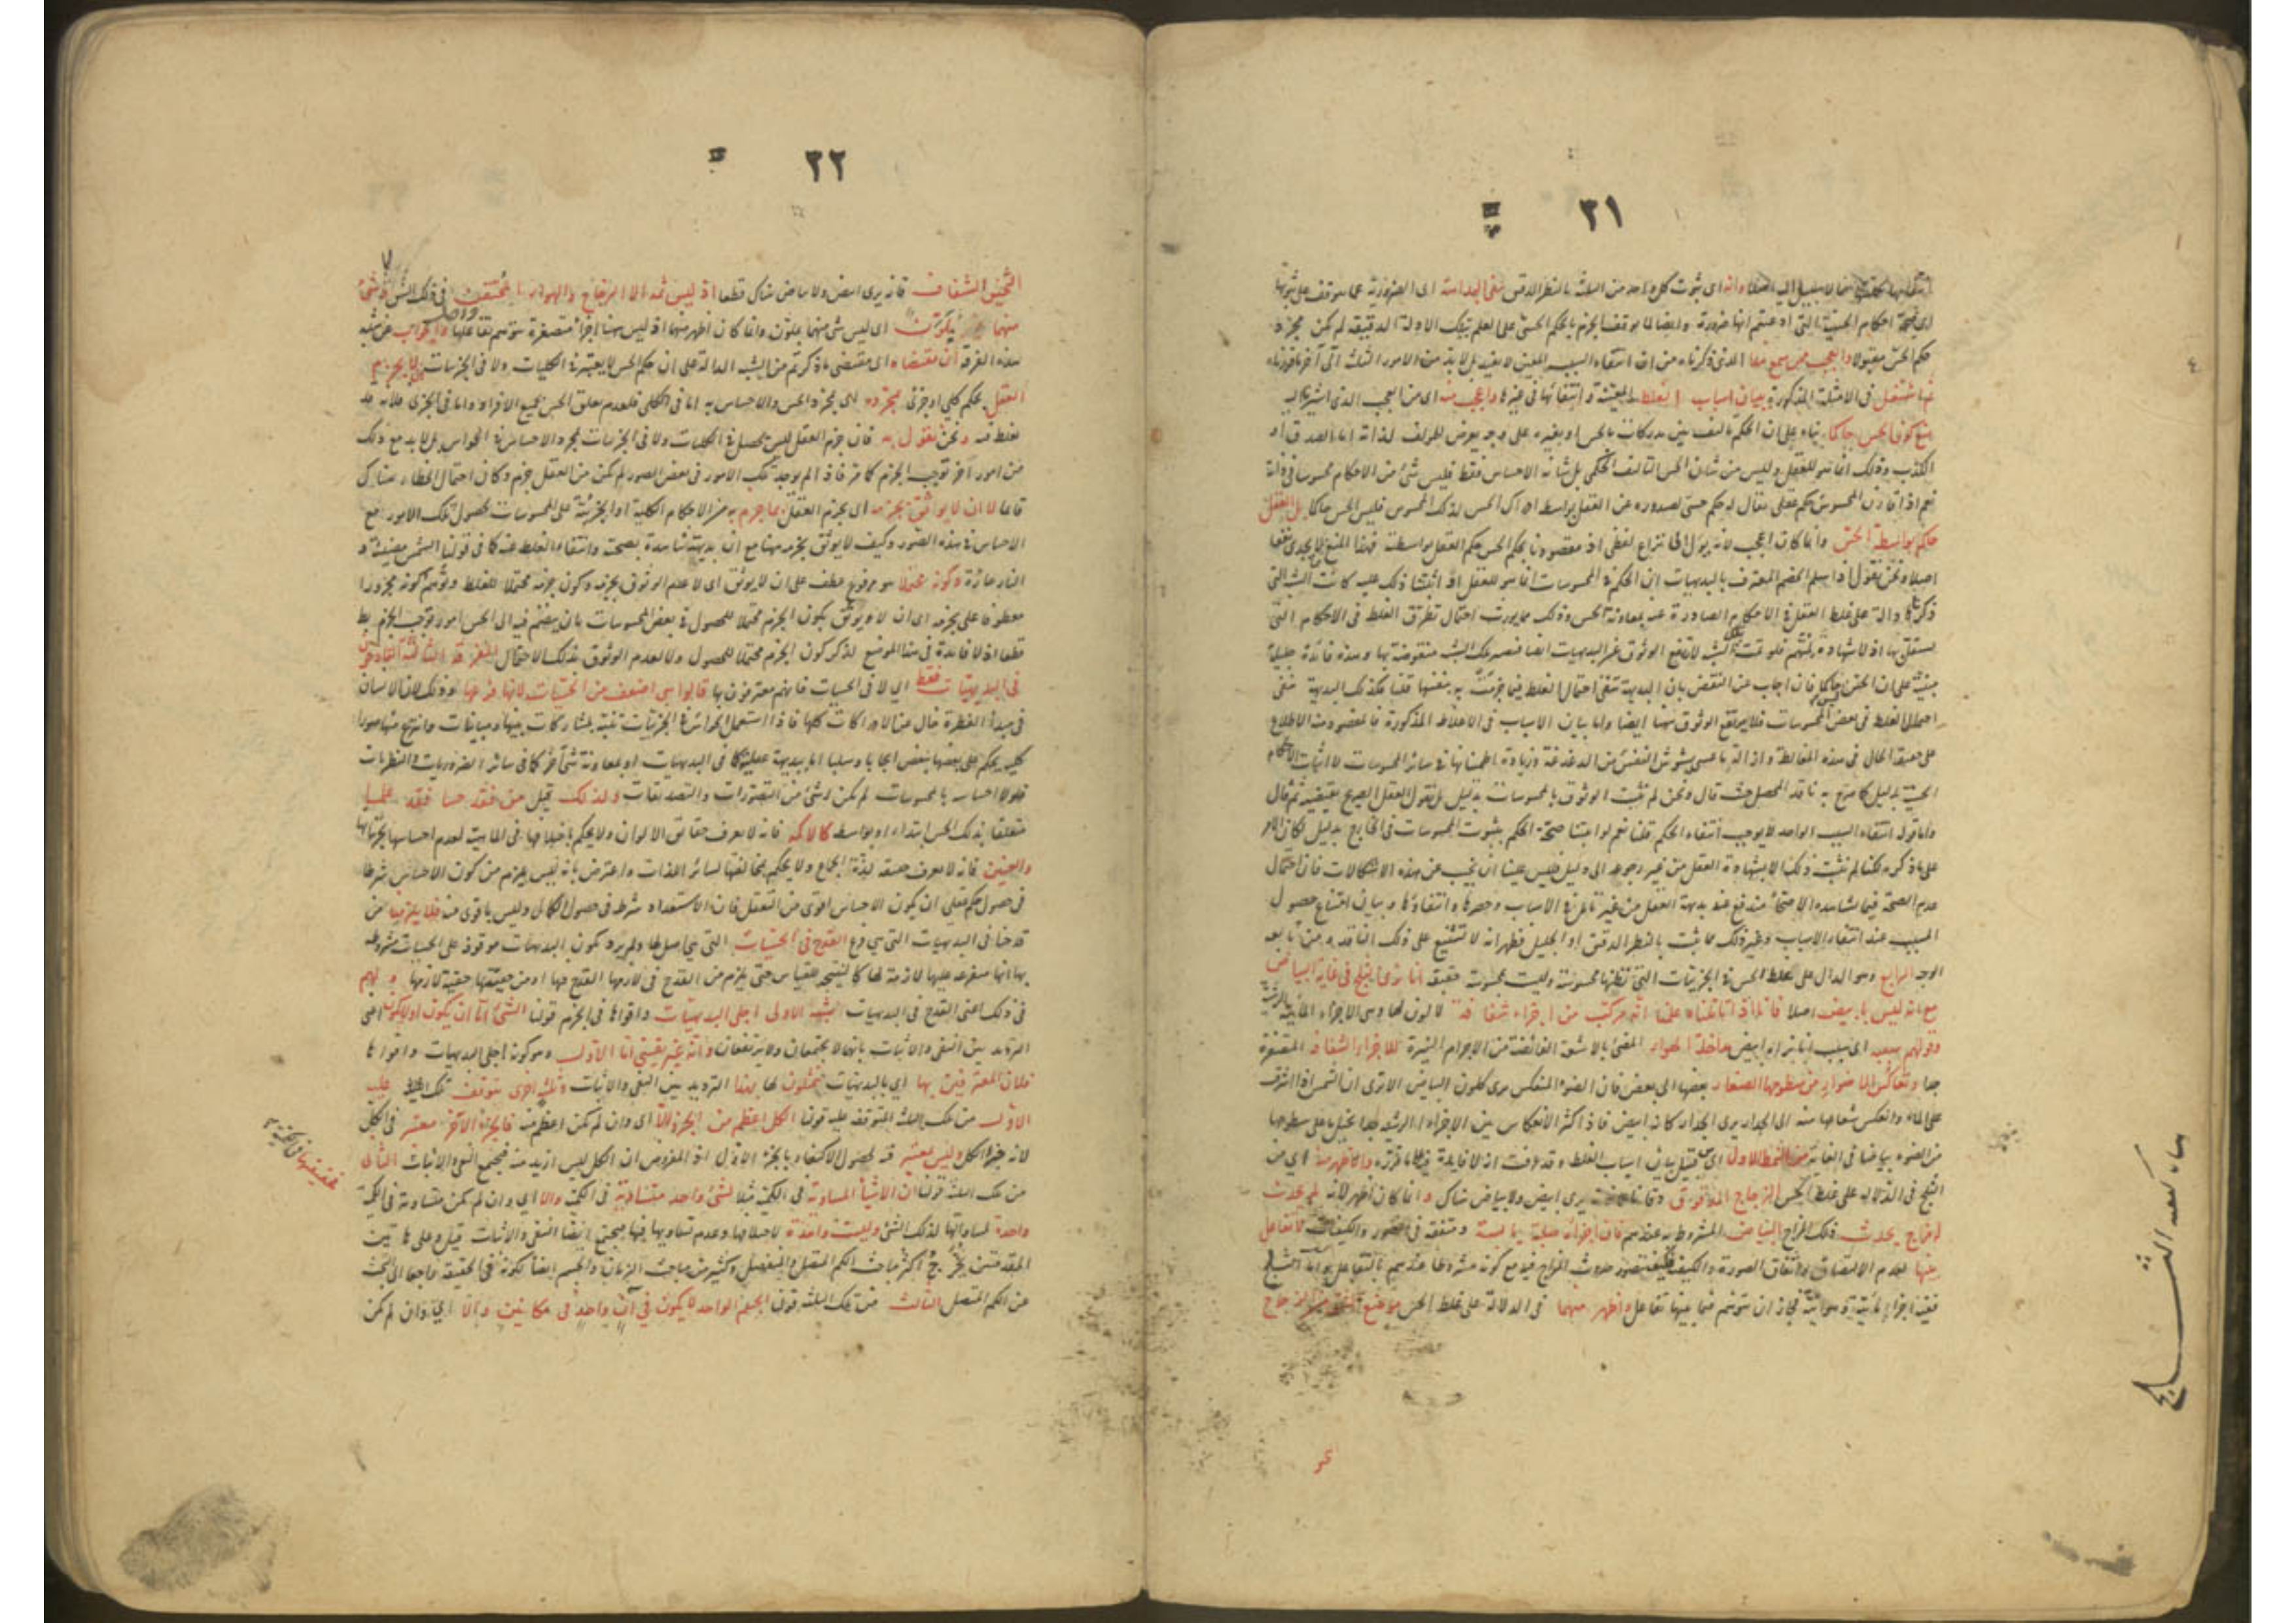 ٢١
وانه اى ثبوت كل واحد من الثلثة بالنظر الدقيق ينفى البداهة
اى صحة احكام الحسية التى ادعيتم انها ضرورة وايضا لما توقف الجزم بالحكم الحسى على العلم بتلك الادلة الدقيقة لم يكن مجرد
حكم الحس مقبولا والعجب ممن سمع هذا الذى ذكرناه من ان انتفاء السبب المعين لا يفيد بل لا بد من الامور الثلثة الى آخر ما قررناه
ثم اشتغل فى الامثلة المذكورة ببيان اسباب الغلط المعينة وانتفائها فى غيرها واعجب منه اى من العجب الذى اشير اليه
منع كون الحس حاكما بناء على ان الحكم تاليف بين مدركات بالحس او بغيره على وجه يعرض للمؤلف لذاته اما الصدق او
الكذب وذلك انما هو للعقل وليس من شان الحس التاليف الحكمى بل شانه الاحساس فقط فليس شئ من الاحكام محسوسا فى ذاته
نعم اذا قارن المحسوس حكم عقلى يقال له حكم حسى لصدوره عن العقل بواسطة ادراك الحس لذلك المحسوس فليس الحس حاكما بل العقل
حاكم بواسطة الحس وانما كان اعجب لانه يؤل الى نزاع لفظى اذ مقصودنا بحكم الحس حكم العقل بواسطته فهذا المنع لا يجدى نفعا
اصلا ونحن نقول اذا سلم الخصم المعترف بالبديهيات ان الحكم فى المحسوسات انما هو للعقل
ذكرها دالة على غلط العقل فى الاحكام الصادرة عنه بمعاونة الحس وذلك مما يورث احتمال تطرق الغلط فى الاحكام التى
يستقل بها اذ لا شهادة لمتهم فلو تمت تلك الشبه لارتفع الوثوق عن البديهيات ايضا فتصير تلك الشبه منقوضة بها وهذه فائدة جليلة
مبنية على ان الحس ليس حاكما فان اجاب عن النقض بان البديهة تنفى احتمال الغلط فيما جزمت به بنفسها قلنا فكذلك البديهة تنفى
احتمال الغلط فى بعض المحسوسات فلا يرتفع الوثوق عنها ايضا واما بيان الاسباب فى الاغلاط المذكورة فالمقصود منه الاطلاع
على حقيقة الحال فى هذه المغالطة وازالة ما عسى يشوش النفس من الدغدغة وزيادة اطمئنانها فى سائر المحسوسات لا اثبات الاحكام
الحسية بدليل كما صرح به ناقد المحصل حيث قال ونحن لم نثبت الوثوق بالمحسوسات بدليل بل نقول العقل الصريح يقتضيه ثم قال
واما قوله انتفاء السبب الواحد لا يوجب انتفاء الحكم قلنا نعم لو اثبتنا صحة الحكم بثبوت المحسوسات فى الخارج بدليل لكان الامر
على ما ذكره لكنا لم نثبت ذلك الا بشهادة العقل من غير رجوعه الى دليل فليس علينا ان نجيب عن هذه الاشكالات فان احتمال
عدم الصحة فيما يشاهده الاصحاء مندفع عند بديهة العقل من غير تامل فى الاسباب وحصرها وانتفاؤها وبيان امتناع حصول
المسبب عند انتفاء الاسباب وغير ذلك مما يثبت بالنظر الدقيق او الجليل فظهر ان لا تشنيع على ذلك الناقد ومن تابعه
الوجه الرابع وهو الدال على غلط الحس فى الجزئيات التى نظنها محسوسة وليست محسوسة حقيقة انا نرى الثلج فى غاية البياض
مع انه ليس بابيض اصلا فانا اذا تاملناه علمنا انه مركب من اجزاء شفافة لا لون لها وهى الاجزاء المائية الرشية
وقولهم سببه اى سبب انا نراه ابيض مداخلة الهواء المضئ بالاشعة الفائضة من الاجرام النيرة للاجزاء الشفافة المتصغرة
جدا وتعاكس الاضواء من سطوحها الصغار بعضها الى بعض فان الضوء المنعكس يرى كلون البياض الا يرى ان الشمس اذا اشرقت
على الماء وانعكس شعاعها منه الى الجدار يرى الجدار كانه ابيض فاذا اكثر الانعكاس بين الاجزاء الرشية جدا تخيل ما على سطوحها
من الضوء بياضا فى الغاية من النمط الاول اى من قبيل بيان اسباب الغلط وقد عرفت ان لا فائدة فيه لما قررته والاظهر منه اى من
الثلج فى الدلالة على غلط الحس الزجاج المدقوق دقا ناعما يرى ابيض ولا بياض هناك وانما كان اظهر لانه لم يحدث
مزاج يحدث ذلك المزاج البياض المشروط به عندهم فان اجزائه صلبة يابسة ومتفقة فى الصور والكيفيات لا تفاعل
بينها لعدم الالتصاق واتفاق الصورة والكيفية فكيف يتصور حدوث المزاج فيه مع كونه مشروطا عندهم بالتفاعل واما الثلج
ففيه اجزاء مائية وهوائية فجاز ان يتوهم فيما بينها تفاعل واظهر منهما فى الدلالة على غلط الحس موضع الشق من الزجاج
٢٢
الثخين الشفاف فانه يرى ابيض ولا بياض هناك قطعا اذ ليس ثمه الا الزجاج والهواء المحتقن فى ذلك الشق وشئ
منهما غير متلون اى ليس شئ منهما بملون وانما كان اظهر منهما اذ ليس ههنا اجزاء متصغرة يتوهم تفاعلها والجواب عن شبه
هذه الفرقة ان مقتضاه اى مقتضى ما ذكرتم من الشبه الدالة على ان حكم الحس لا يعتبر فى الكليات ولا فى الجزئيات ان لا يجزم
العقل بحكم كلى او جزئى بمجرده اى بمجرد الحس والاحساس به اما فى الكلى فلعدم تعلق الحس بجميع الافراد واما فى الجزئى فلانه قد
يغلط فيه ونحن نقول به فان جزم العقل ليس يحصل فى الكليات ولا فى الجزئيات بمجرد الاحساس فى الحواس بل لا بد مع ذلك
من امور اخر توجب الجزم كما مر فاذا لم يوجد تلك الامور فى بعض الصور لم يكن من العقل جزم وكان احتمال الخطا هناك
قائما لا ان لا يوثق بجزمه اى بجزم العقل بما جزم به من الاحكام الكلية او الجزئية على المحسوسات لحصول تلك الامور مع
الاحساس فى هذه الصور وكيف لا يوثق بجزمه ههنا مع ان بديهته شاهدة بصحته وانتفاء الغلط عنه كما فى قولنا الشمس مضيئة و
النار حارة وكونه محتملا هو مرفوع عطف على ان لا يوثق اى لا عدم الوثوق بجزمه وكون جزمه محتملا للغلط وتوهم كونه مجرورا
معطوفا على بجزمه اى ان لا يوثق بكون الجزم محتملا للحصول فى بعض المحسوسات بان ينضم فيه الى الحس امور توجب الجزم
قطعا اذ لا فائدة فى هذا الموضع لذكر كون الجزم محتملا للحصول ولا لعدم الوثوق بذلك الاحتمال الفرقة الثالثة القادحون
فى البديهيات فقط اى لا فى الحسيات فانهم معترفون بها قالوا هى اضعف من الحسيات لانها فرعها وذلك لان الانسان
فى مبدأ الفطرة خال عن الادراكات كلها فاذا استعمل الحواس فى الجزئيات تنبه لمشاركات بينها ومباينات وانتزع منها صورا
كلية يحكم على بعضها ببعض ايجابا وسلبا اما ببديهة عقله كما فى البديهيات او بمعاونة شئ آخر كما فى سائر الضروريات والنظريات
فلولا احساسه بالمحسوسات لم يكن له شئ من التصورات والتصديقات ولذلك قيل من فقد حسا فقد علما
متعلقا بذلك الحس ابتداء او بواسطة كالاكمه فانه لا يعرف حقائق الالوان ولا يحكم باختلافها فى الماهية لعدم احساسه بجزئياتها
والعنين فانه لا يعرف حقيقة لذة الجماع ولا يحكم بمخالفتها لسائر اللذات واعترض بانه ليس يلزم من كون الاحساس شرطا
فى حصول حكم عقلى ان يكون الاحساس اقوى من التعقل فان الاستعداد شرط فى حصول الكمال وليس باقوى منه فلا يلزم من
قدحنا فى البديهيات التى هى فرع القدح فى الحسيات التى هى اصل لها ولم يرد بكون البديهيات موقوفة على الحسيات مشروطة
بها انها متفرعة عليها لازمة لها كالنتيجة للقياس حتى يلزم من القدح فى لازمها القدح فيها او من حقيقتها حقية لازمها ولهم
فى ذلك اعنى القدح فى البديهيات الشبهة الاولى اجلى البديهيات واقواها فى الجزم قولنا الشئ اما ان يكون او لا يكون اعنى
الترديد بين النفى والاثبات بانهما لا يجتمعان ولا يرتفعان وانه غير يقينى اما الاول وهو كونه اجلى البديهيات واقواها
فلان المعترفين بها اى بالبديهيات يمثلون لها بهذا الترديد بين النفى والاثبات وثلثة اخرى يتوقف تلك الثلثة عليه
الاول من تلك الثلثة المتوقفة عليه قولنا الكل اعظم من الجزء والا اى وان لم يكن اعظم منه فالجزء الآخر معتبر فى الكل
لانه جزء الكل وليس معتبر فيه لحصول الاكتفاء بالجزء الاول اذ المفروض ان الكل ليس ازيد منه فيجتمع النفى والاثبات الثانى
من تلك الثلثة قولنا ان الاشياء المساوية فى الكمية مثلا لشئ واحد متساوية فى الكمية والا اى وان لم تكن متساوية فى الكمية
واحدة لمساواتها لذلك الشئ وليست واحدة لاختلافها وعدم تساويها فيها فيجتمع ايضا النفى والاثبات قيل وعلى هاتين
المقدمتين يخرج اكثر مباحث الكم المتصل والمنفصل وكثير من مباحث الزمان والجسم ايضا لكونه فى الحقيقة راجعا الى البحث
عن الكم المتصل الثالث من تلك الثلثة قولنا الجسم الواحد لا يكون فى آن واحد فى مكانين والا اى وان لم يكن